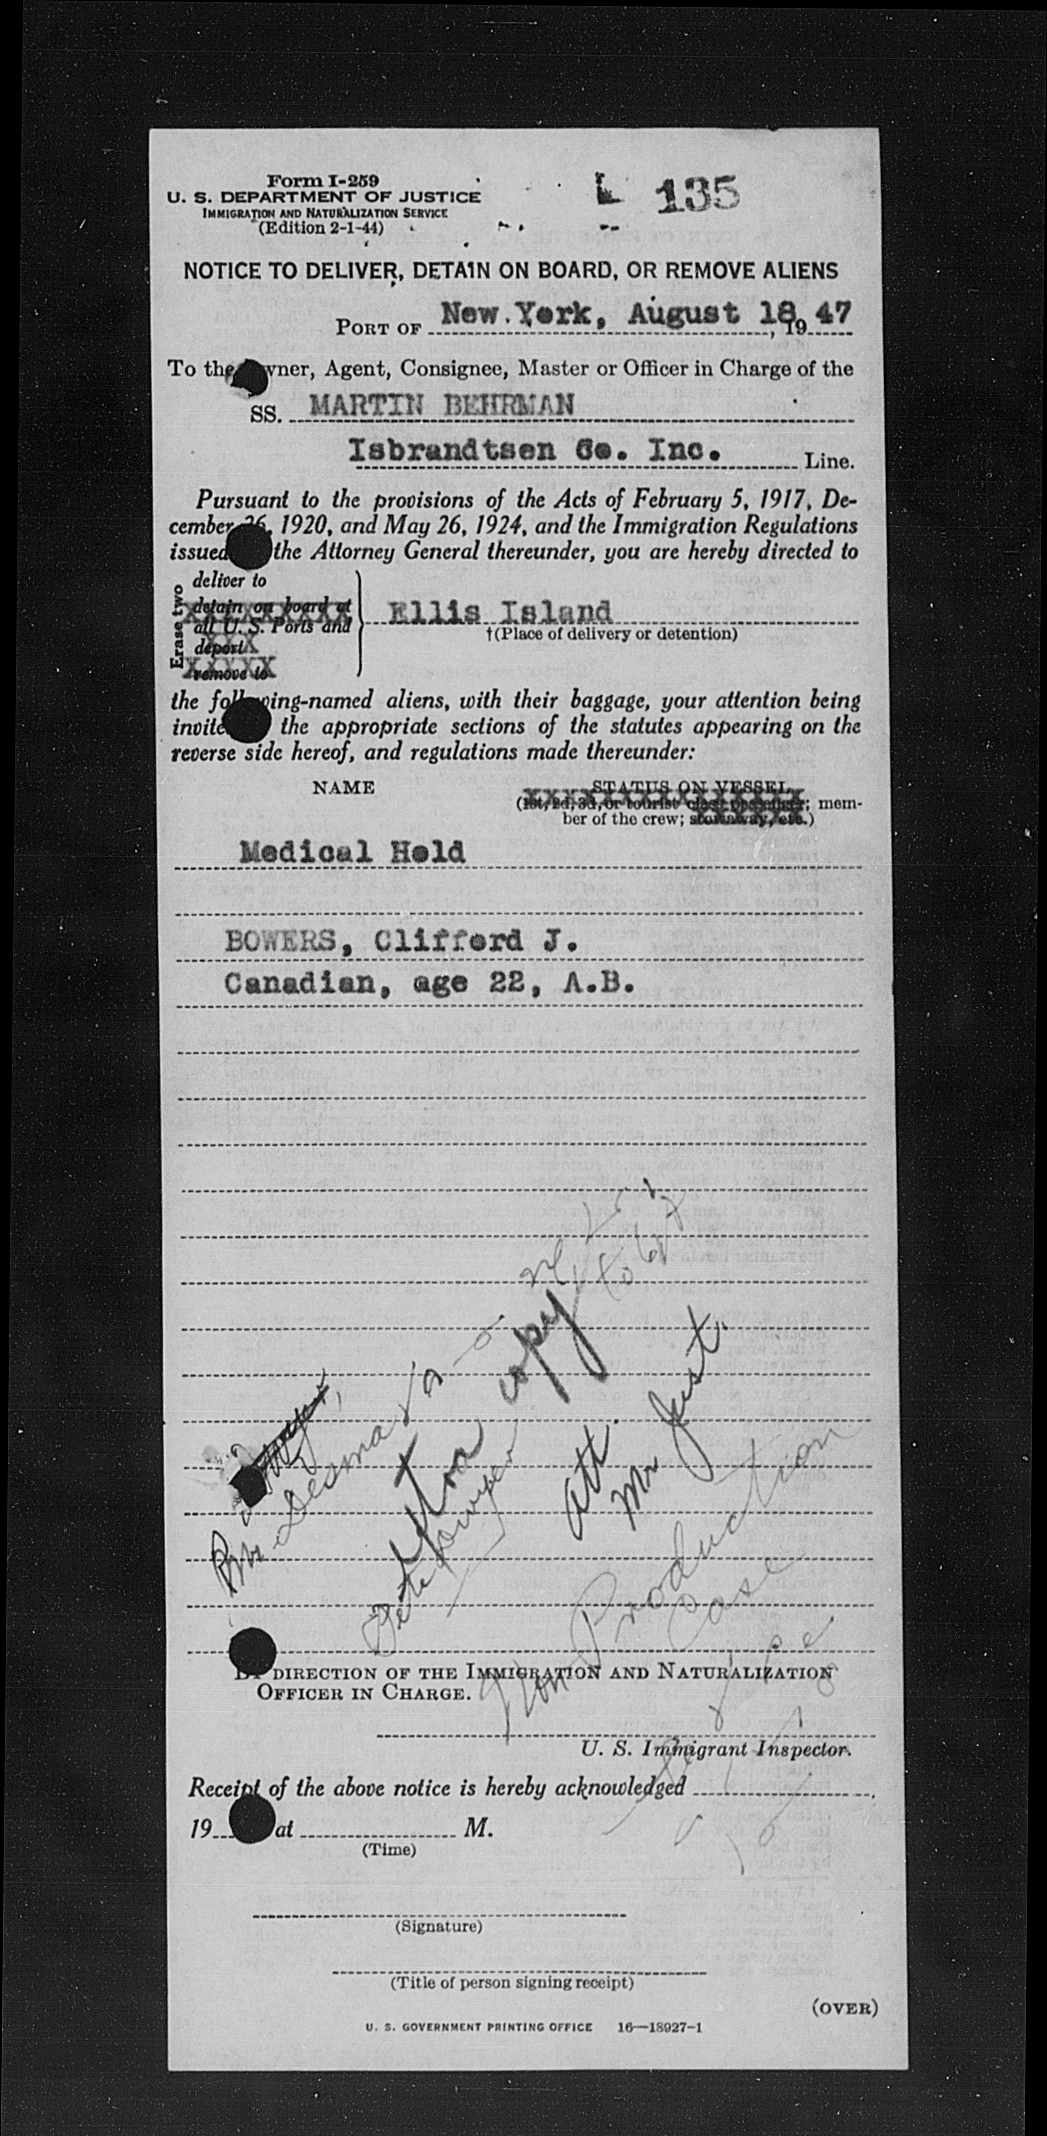 Form I-259
U. S. DEPARTMENT OF JUSTICE
IMMIGRATION AND NATURALIZATION SERVICE
(Edition 2-1-44)
L 135
NOTICE TO DELIVER, DETAIN ON BOARD, OR REMOVE ALIENS
PORT OF New York, August 18, 1947
To the Owner, Agent, Consignee, Master or Officer in Charge of the
SS. MARTIN BEHRMAN
Isbrandtsen Co. Inc. Line.
Pursuant to the provisions of the Acts of February 5, 1917, De-
cember 26, 1920, and May 26, 1924, and the Immigration Regulations
issued the Attorney General thereunder, you are hereby directed to
Erase two
deliver to
detain on board at
all U. S. Ports and
deport
remove to
Ellis Island
†(Place of delivery or detention)
the following-named aliens, with their baggage, your attention being
invited the appropriate sections of the statutes appearing on the
reverse side hereof, and regulations made thereunder:
NAME
STATUS ON VESSEL
(1st, 2d, 3d, or tourist class passenger; mem-
ber of the crew; stowaway, etc.)
Medical Hold
BOWERS, Clifford J.
Canadian, age 22, A.B.
Extra copy
Att.
Mr Just.
Non Production
Case
BY DIRECTION OF THE IMMIGRATION AND NATURALIZATION
OFFICER IN CHARGE.
U. S. Immigrant Inspector.
Receipt of the above notice is hereby acknowledged
19 at M.
(Time)
(Signature)
(Title of person signing receipt)
(OVER)
U. S. GOVERNMENT PRINTING OFFICE 16—18927-1